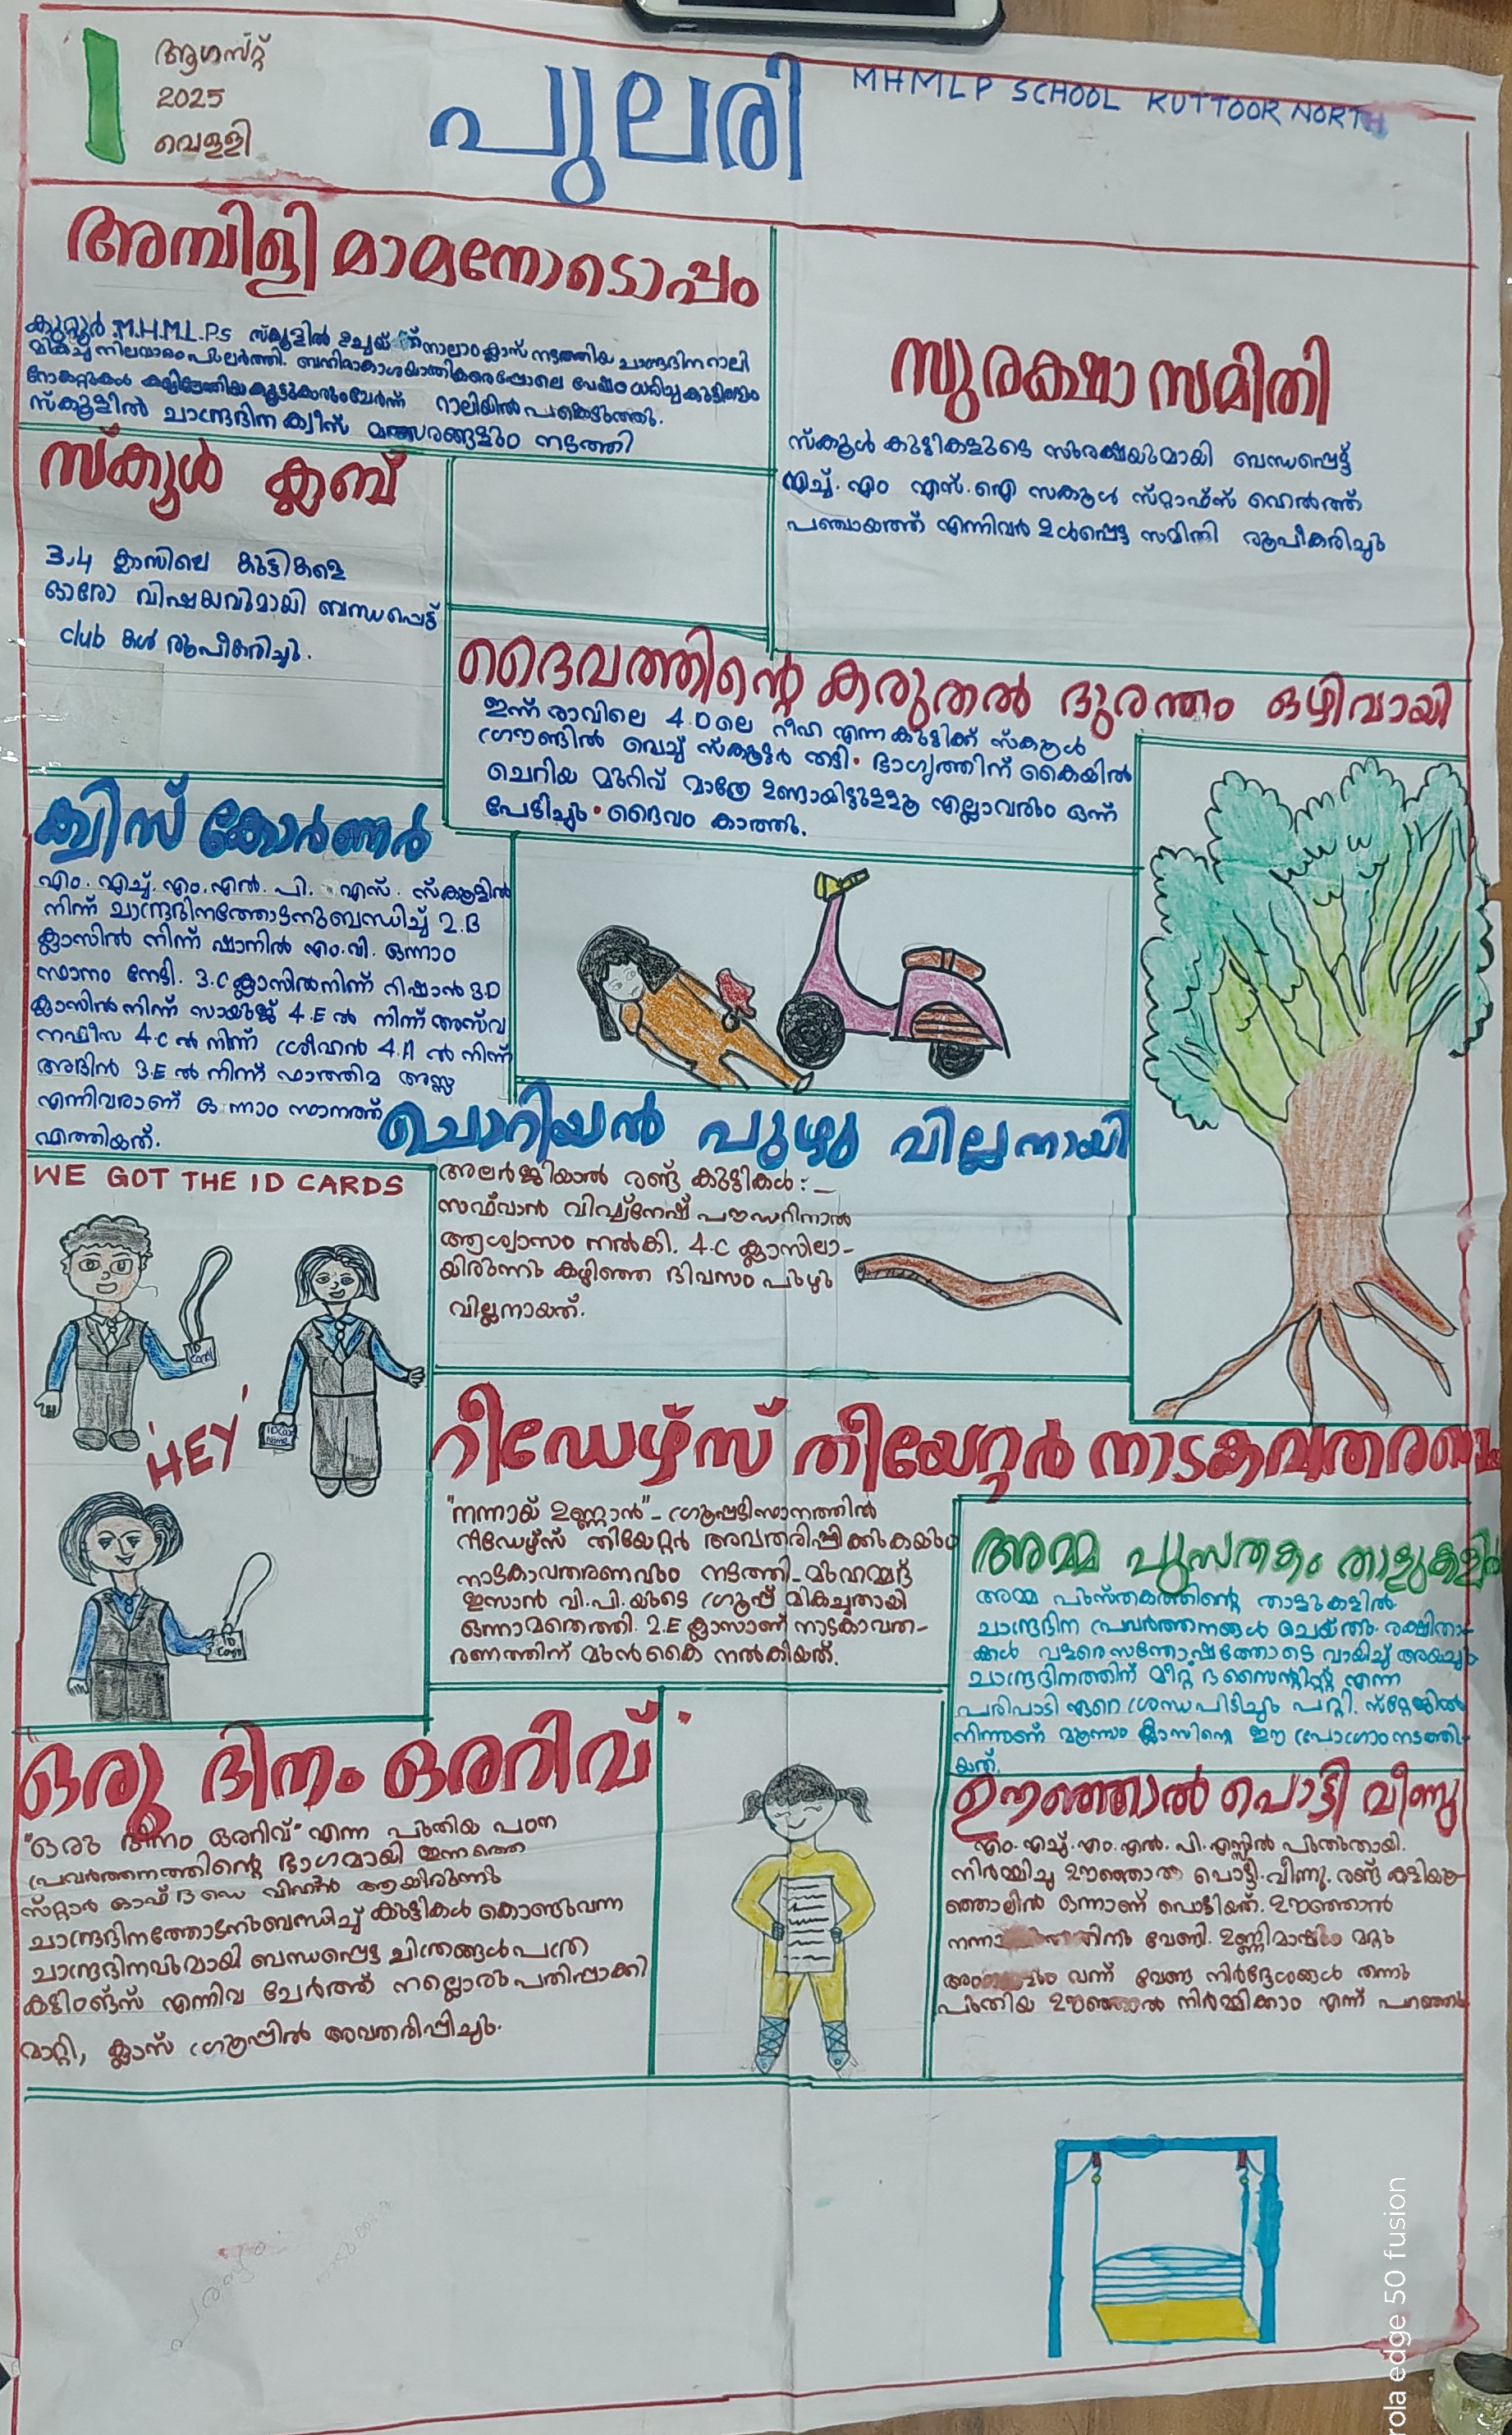 1
ആഗസ്റ്റ്
2025
വെള്ളി
പുലരി
MHMLP SCHOOL KUTTOOR NORTH
അമ്പിളി മാമനോടൊപ്പം
കുറ്റൂർ M.H.M.L.P.S സ്കൂളിൽ നാലാം ക്ലാസ് നടത്തിയ ചാന്ദ്രദിന റാലി
മികച്ച നിലവാരം പുലർത്തി. ബഹിരാകാശയാത്രികരെപ്പോലെ വേഷം ധരിച്ച കുട്ടികളും
റാലിയിൽ പങ്കെടുത്തു.
സ്കൂളിൽ ചാന്ദ്രദിന ക്വിസ് മത്സരങ്ങളും നടത്തി
സുരക്ഷാ സമിതി
സ്കൂൾ കുട്ടികളുടെ സുരക്ഷയുമായി ബന്ധപ്പെട്ട്
എച്ച്. എം എസ്.ഐ സകൂൾ സ്റ്റാഫ്സ് ഹെൽത്ത്
പഞ്ചായത്ത് എന്നിവർ ഉൾപ്പെട്ട സമിതി രൂപീകരിച്ചു
സ്കൂൾ ക്ലബ്
3,4 ക്ലാസിലെ കുട്ടികളെ
ഓരോ വിഷയവുമായി ബന്ധപ്പെട്ട്
club കൾ രൂപീകരിച്ചു.
ദൈവത്തിന്റെ കരുതൽ ദുരന്തം ഒഴിവായി
ഇന്ന് രാവിലെ 4.D ലെ റീഹ എന്ന കുട്ടിക്ക് സ്കൂൾ
ഗ്രൗണ്ടിൽ വെച്ച് സ്കൂട്ടർ തട്ടി. ഭാഗ്യത്തിന് കൈയിൽ
ചെറിയ മുറിവ് മാത്രേ ഉണ്ടായിട്ടുള്ളൂ എല്ലാവരും ഒന്ന്
പേടിച്ചു. ദൈവം കാത്തു.
ക്വിസ് കോർണർ
എം. എച്ച്. എം. എൽ. പി. എസ്. സ്കൂളിൽ
നിന്ന് ചാന്ദ്രദിനത്തോടനുബന്ധിച്ച് 2.B
ക്ലാസിൽ നിന്ന് ഷാനിൽ എം.വി. ഒന്നാം
സ്ഥാനം നേടി. 3.C ക്ലാസിൽനിന്ന് റിഷാൻ 3.D
ക്ലാസിൽ നിന്ന് സായൂജ് 4.E ൽ നിന്ന് അസ്വ
നഫീസ 4.C ൽ നിന്ന് ശ്രീഹൻ 4.A ൽ നിന്ന്
അദിൻ 3.E ൽ നിന്ന് ഫാത്തിമ അസ്സ
എന്നിവരാണ് ഒന്നാം സ്ഥാനത്ത്
എത്തിയത്.
ചൊറിയൻ പുഴു വില്ലനായി
അലർജിയാൽ രണ്ട് കുട്ടികൾ:
സഫ്‌വാൻ പൗഡറിനാൽ
ആശ്വാസം നൽകി. 4.C ക്ലാസിലാ-
യിരുന്നു കഴിഞ്ഞ ദിവസം പുഴു
വില്ലനായത്.
WE GOT THE ID CARDS
ID Card
'HEY'
ID Card
Name
ID Card
റീഡേഴ്സ് തീയേറ്റർ നാടകവതരണം
"നന്നായ് ഉണ്ണാൻ" - ഗ്രൂപ്പടിസ്ഥാനത്തിൽ
റീഡേഴ്സ് തിയേറ്റർ അവതരിപ്പിക്കുകയും
നാടകാവതരണവും നടത്തി. മുഹമ്മദ്
ഇസാൻ വി.പി.യുടെ ഗ്രൂപ്പ് മികച്ചതായി
ഒന്നാമതെത്തി. 2.E ക്ലാസാണ് നാടകാവത-
രണത്തിന് മുൻകൈ നൽകിയത്.
അമ്മ പുസ്തകം താളുകളിൽ
അമ്മ പുസ്തകത്തിന്റെ താളുകളിൽ
ചാന്ദ്രദിന പ്രവർത്തനങ്ങൾ ചെയ്തു. രക്ഷിതാ-
ക്കൾ വളരെ സന്തോഷത്തോടെ വായിച്ച് അയച്ചു
ചാന്ദ്രദിനത്തിന് മീറ്റ് ദ സൈന്റിസ്റ്റ് എന്ന
പരിപാടി ഏറെ ശ്രദ്ധ പിടിച്ചു പറ്റി. സ്റ്റേജിൽ
നിന്നാണ് മൂന്നാം ക്ലാസിന്റെ ഈ പ്രോഗ്രാം നടത്തി-
യത്.
ഒരു ദിനം ഒരറിവ്
"ഒരു ദിനം ഒരറിവ്" എന്ന പുതിയ പഠന
പ്രവർത്തനത്തിന്റെ ഭാഗമായി ഇന്നത്തെ
സ്റ്റാർ ഓഫ് ദ ഡെ ആയിരുന്നു
ചാന്ദ്രദിനത്തോടനുബന്ധിച്ച് കുട്ടികൾ കൊണ്ടുവന്ന
ചാന്ദ്രദിനവുമായി ബന്ധപ്പെട്ട ചിത്രങ്ങൾ പത്ര
കട്ടിംങ്ങ്സ് എന്നിവ ചേർത്ത് നല്ലൊരു പതിപ്പാക്കി
മാറ്റി, ക്ലാസ് ഗ്രൂപ്പിൽ അവതരിപ്പിച്ചു.
ഊഞ്ഞാൽ പൊട്ടി വീണു
എം.എച്ച്.എം.എൽ. പി.എസ്സിൽ പുതുതായി.
നിർമ്മിച്ച ഊഞ്ഞാൽ പൊട്ടി വീണു. രണ്ട്
ഞ്ഞാലിൽ ഒന്നാണ് പൊട്ടിയത്. ഊഞ്ഞാൽ
വേണ്ടി. ഉണ്ണിമാഷും മറ്റു
വന്ന് വേണ്ട നിർദ്ദേശങ്ങൾ തന്നു
പുതിയ ഊഞ്ഞാൽ നിർമ്മിക്കാം എന്ന് പറഞ്ഞു
rola edge 50 fusion